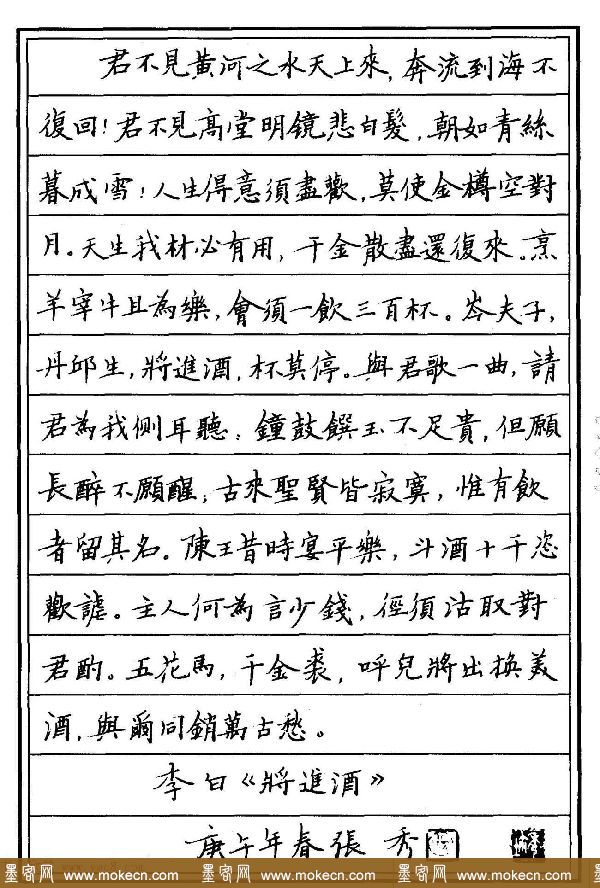 君不見黃河之水天上來，奔流到海不
復回！君不見高堂明镜悲白髮，朝如青絲
暮成雪！人生得意須盡歡，莫使金樽空對
月。天生我材必有用，千金散盡還復來。烹
羊宰牛且為樂，會須一飲三百杯。岑夫子，
丹邱生，將進酒，杯莫停。與君歌一曲，請
君為我側耳聽：鐘鼓饌玉不足貴，但願
長醉不願醒；古來聖賢皆寂寞，惟有飲
者留其名。陳王昔時宴平樂，斗酒十千恣
歡謔。主人何為言少錢，徑須沽取對
君酌。五花馬，千金裘，呼兒將出換美
酒，與爾同銷萬古愁。
李白《將進酒》
庚午年春張秀
墨客网 www.mokecn.com 墨客网 www.mokecn.com 墨客网 www.mokecn.com